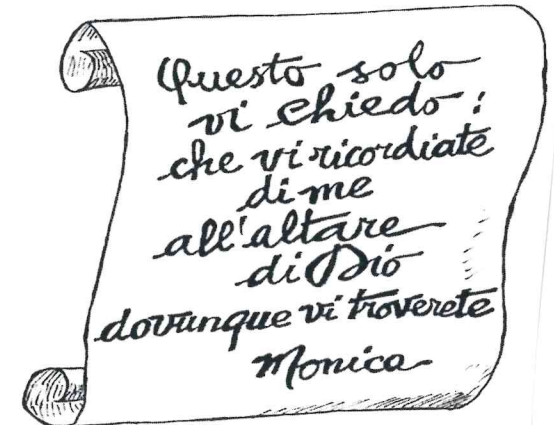 Questo solo
vi chiedo:
che vi ricordiate
di me
all'altare
di Dio
dovunque vi troverete
Monica